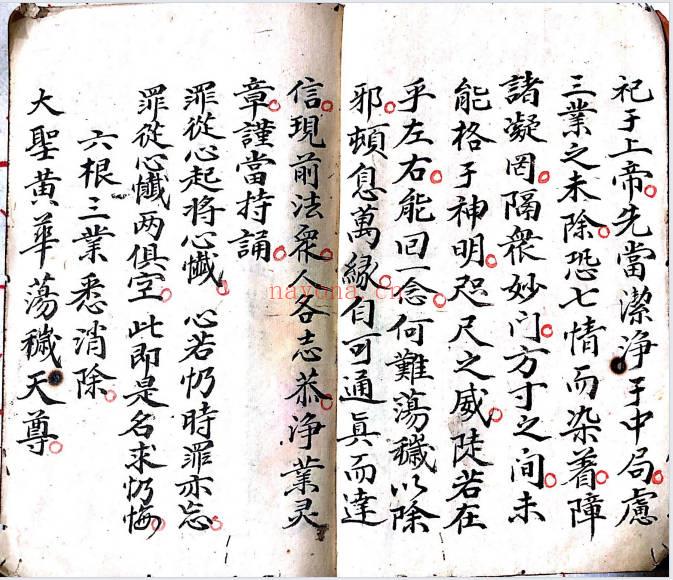 祀于上帝先當潔淨于中局慮
三業之未除恐七情而染着障
諸凝罔隔衆妙门方寸之间未
能格于神明咫尺之威陡若在
乎左右能回一念何難蕩穢以除
邪頓息萬緣自可通眞而達
信現前法衆人各志恭淨業灵
章謹當持誦
罪從心起將心懴 心若忏時罪亦忘
罪從心懴两俱空 此即是名求忏悔
六根三業悉消除
大聖黄華蕩穢天尊
nayona.cn